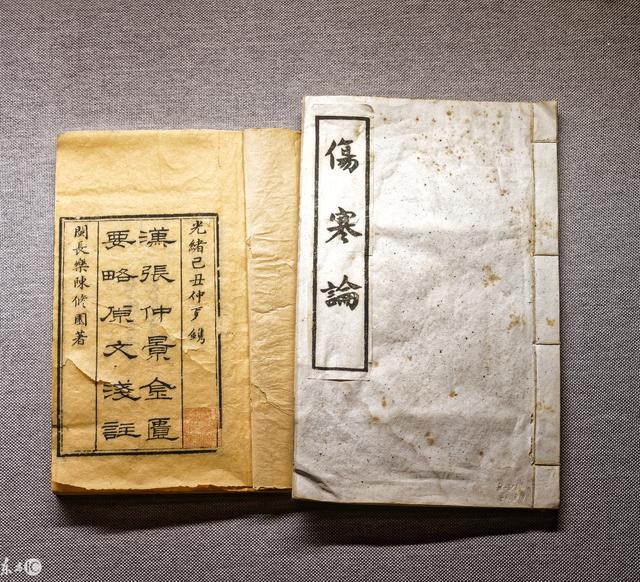 傷寒論
光緒己丑仲夏鐫
漢張仲景金匱
要略原文淺註
閩長樂陳修園著
东方IC